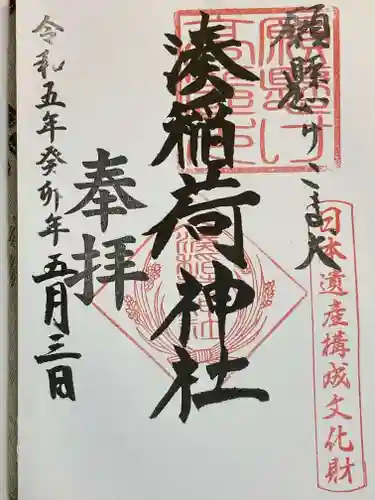 願懸けこま犬
日本遺産構成文化財
湊稲荷神社
奉拝
令和五年癸卯年五月三日